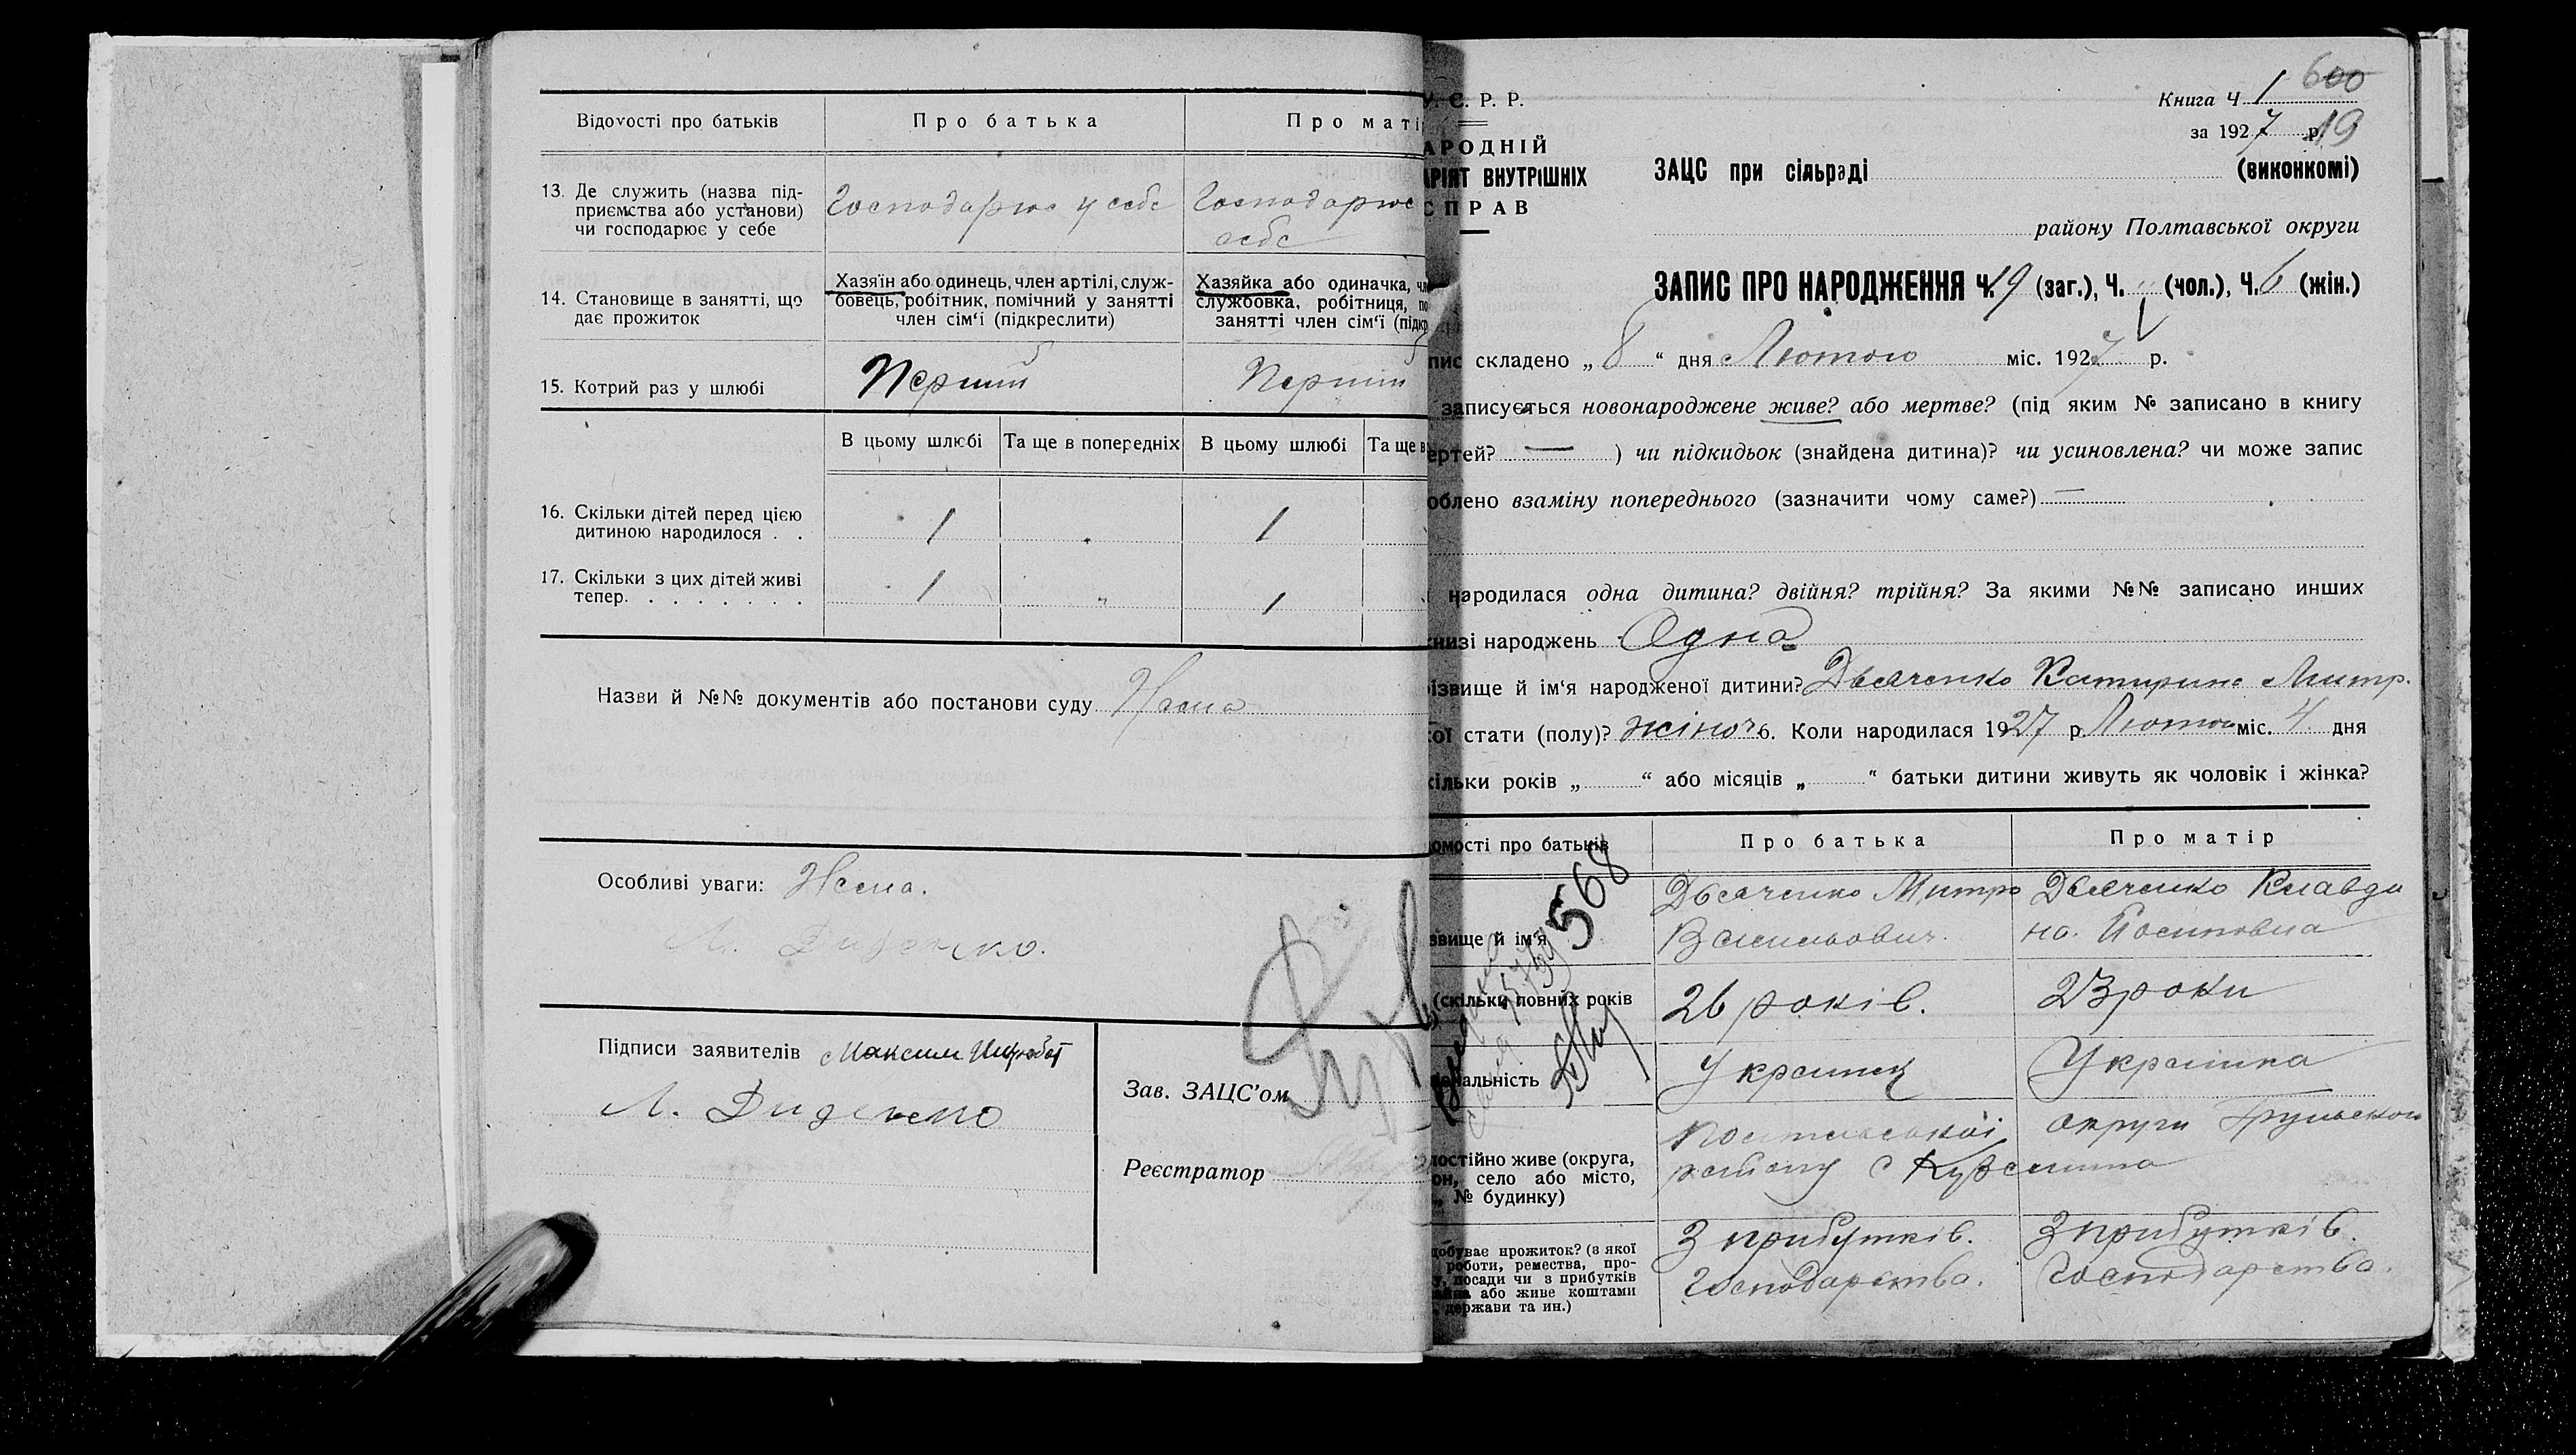 Відомості про батьків
Про батька
Про маті
13. Де служить (назва під-
приємства або установи)
чи господарює у себе
Господарює у себе
Господарює
себе
14. Становище в занятті, що
дає прожиток
Хазяїн або одинець, член артілі, служ-
бовець, робітник, помічний у занятті
член сім‘ї (підкреслити)
Хазяйка або одиначка, чл
службовка, робітниця, по
занятті член сім‘ї (підкр
15. Котрий раз у шлюбі
Перший
Перший
В цьому шлюбі
Та ще в попередніх
В цьому шлюбі
Та ще в
16. Скільки дітей перед цією
дитиною народилося . .
1
1
17. Скільки з цих дітей живі
тепер. . . . . . . .
1
1
Назви й №№ документів або постанови суду Нема
Особливі уваги: Нема.
Л. Диденко.
Підписи заявителів Максим
Л. Диденко
Зав. ЗАЦС’ом
Реєстратор
У. С. Р. Р.
АРОДНІЙ
АРІЯТ ВНУТРІШНІХ
СПРАВ
600
Книга Ч. 1
за 1927 р.
19
ЗАЦС при сільраді (виконкомі)
району Полтавської округи
ЗАПИС ПРО НАРОДЖЕННЯ Ч. 19 (заг.), Ч. " (чол.), Ч. 6 (жін.)
пис складено „ 8 “ дня Лютого міс. 1927 р.
записується новонароджене живе? або мертве? (під яким № записано в книгу
ертей? — ) чи підкидьок (знайдена дитина)? чи усиновлена? чи може запис
облено взаміну попереднього (зазначити чому саме?) —
народилася одна дитина? двійня? трійня? За якими №№ записано инших
книзі народжень Одна
ізвище й ім‘я народженої дитини? Дьяченко Катирина Митр.
кої стати (полу)? жіноч 6. Коли народилася 1927 р. Лютого міс. 4 дня
кільки років „ “ або місяців „ “ батьки дитини живуть як чоловік і жінка?
омості про батьків
Про батька
Про матір
568
звище й ім‘я
Дьяченко Митро
Васильович
Дьяченко Клавди
на. Йосиповна
(скільки повних років
26 років.
23 роки
ональність
Украинец
Украинка
постійно живе (округа,
он, село або місто,
№ будинку)
Полтавської округи Грунського
району с Куземина
добуває прожиток? (з якої
роботи, ремества, про-
у, посади чи з прибутків
айна або живе коштами
держави та ин.)
З прибутків.
Господарства.
З прибутків.
Господарства.